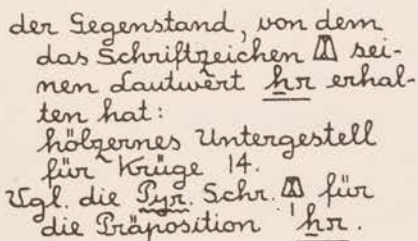 der Gegenstand, von dem
das Schriftzeichen 𓎼 sei-
nen Lautwert ẖr erhal-
ten hat:
hölzernes Untergestell
für Krüge 14.
Vgl. die Pyr. Schr. 𓎼 für
die Präposition ẖr.